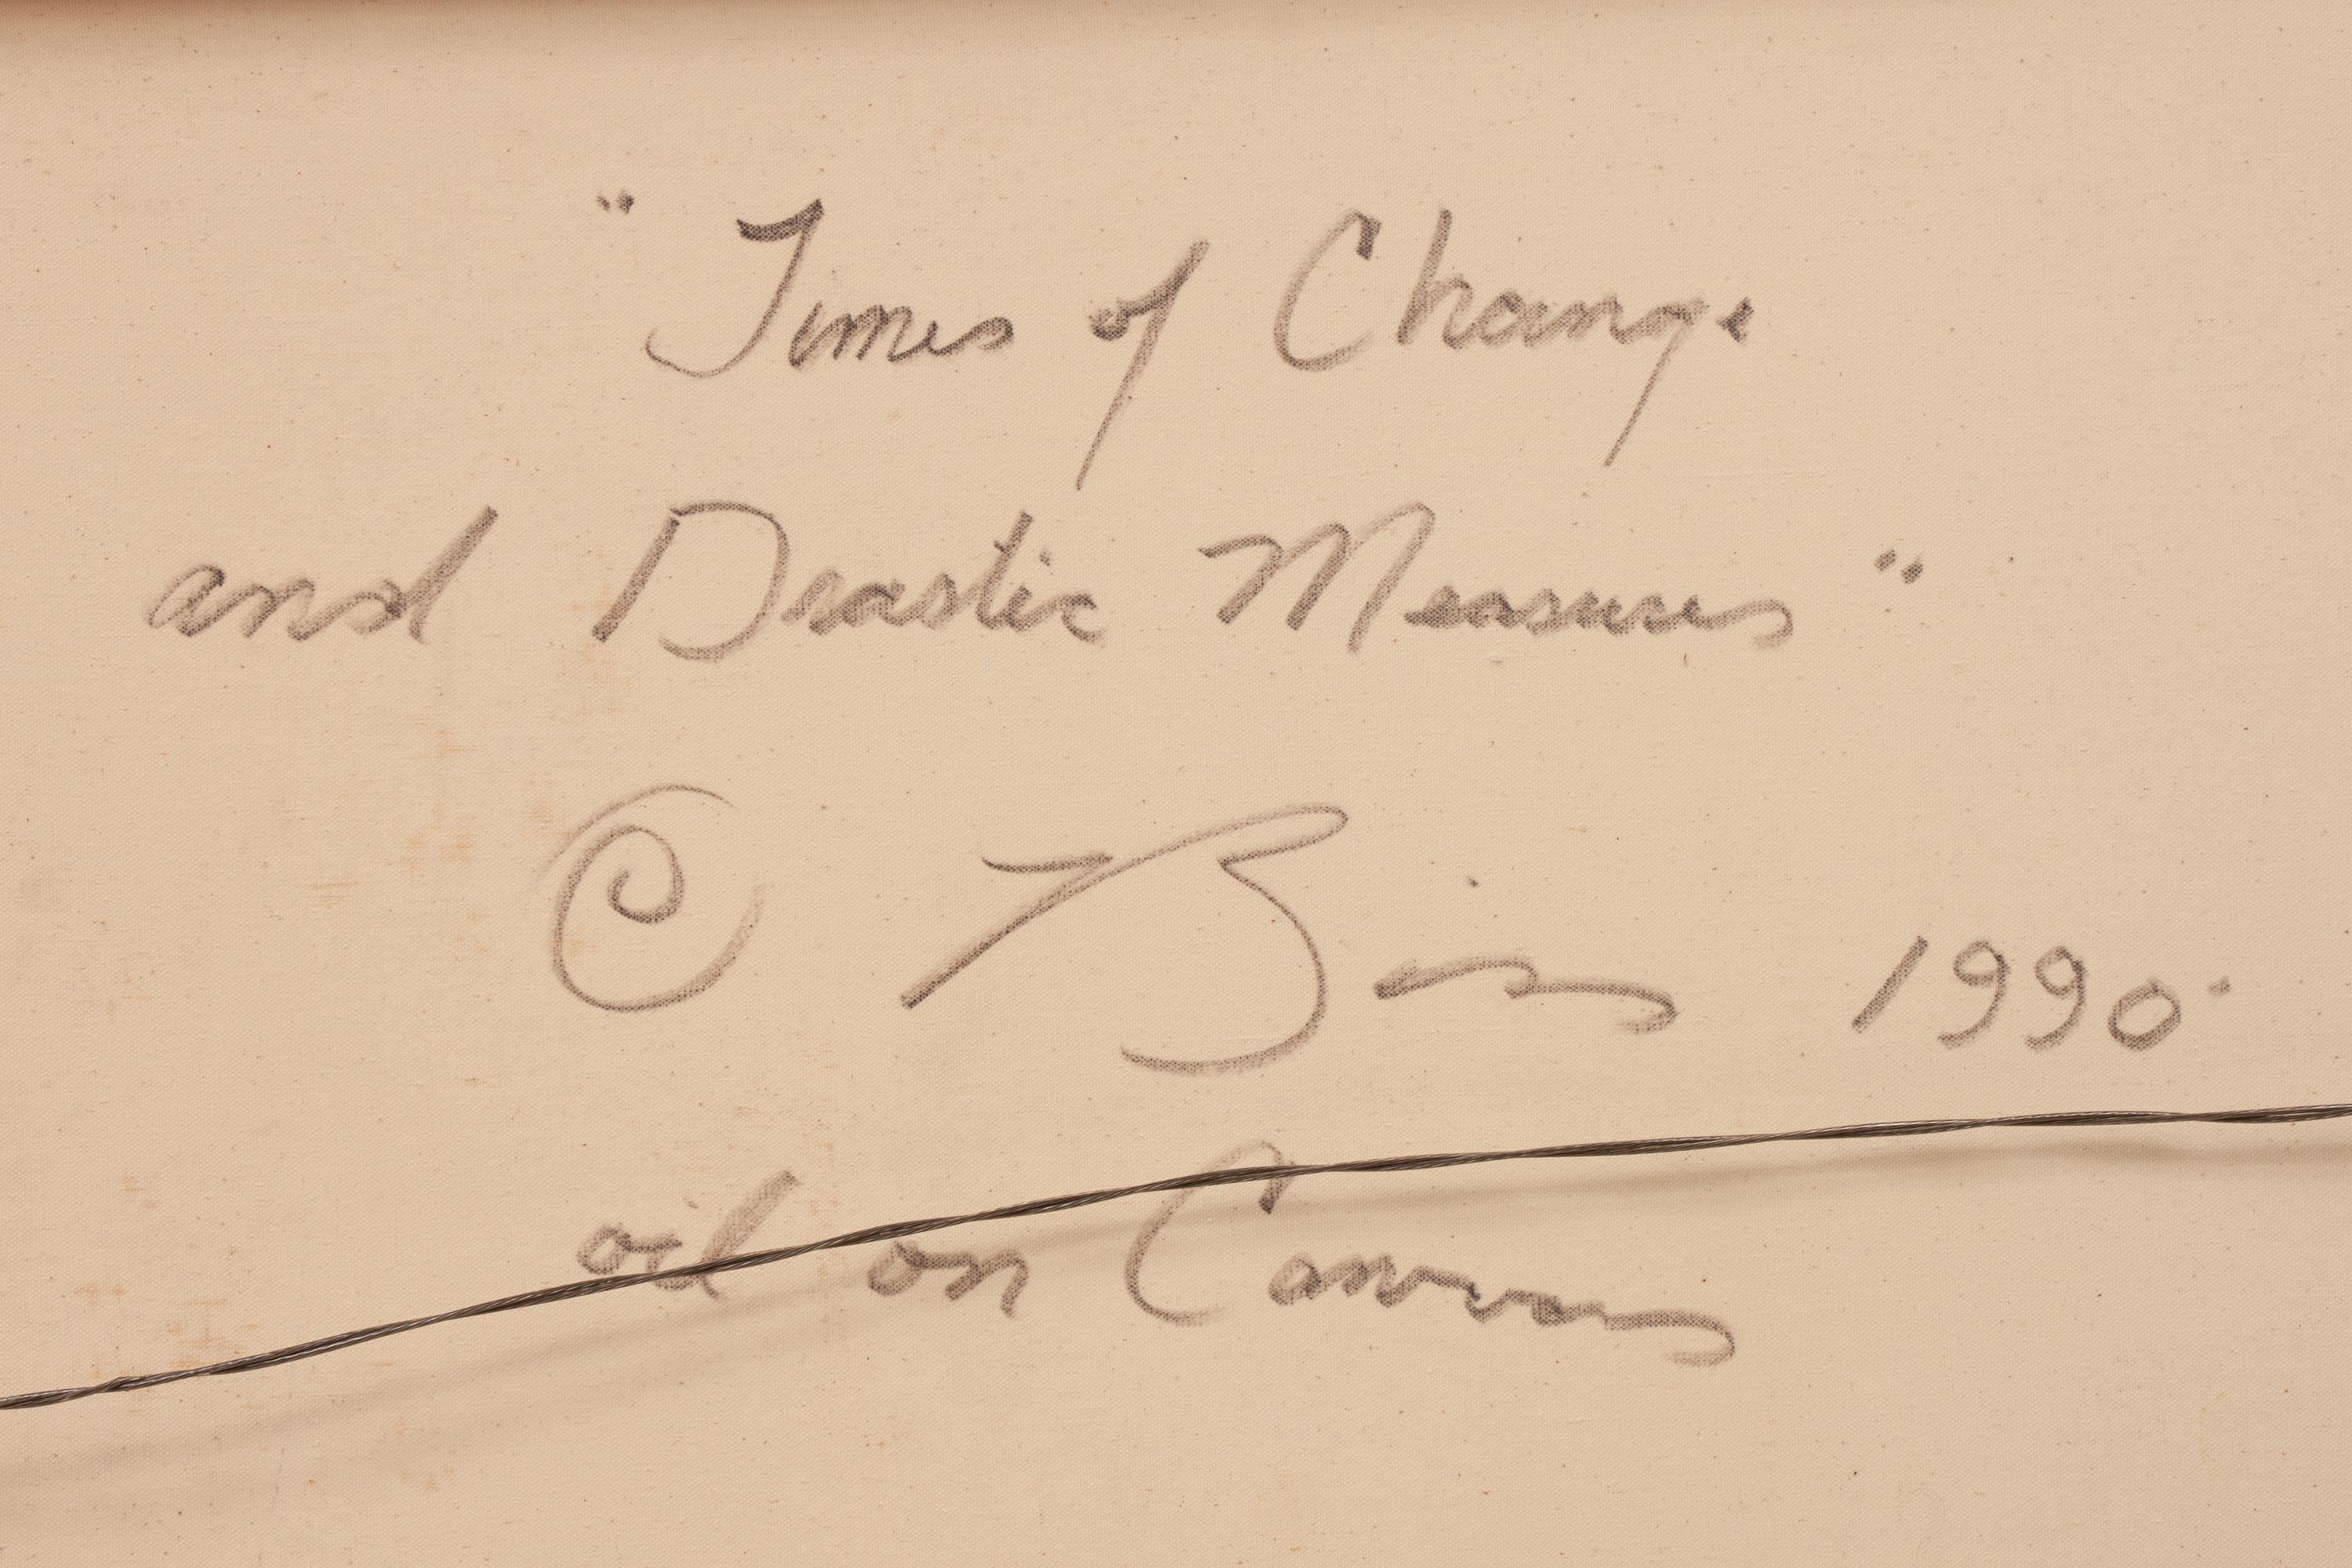 "Times of Change
and Drastic Measures"
© 1990
oil on Canvas